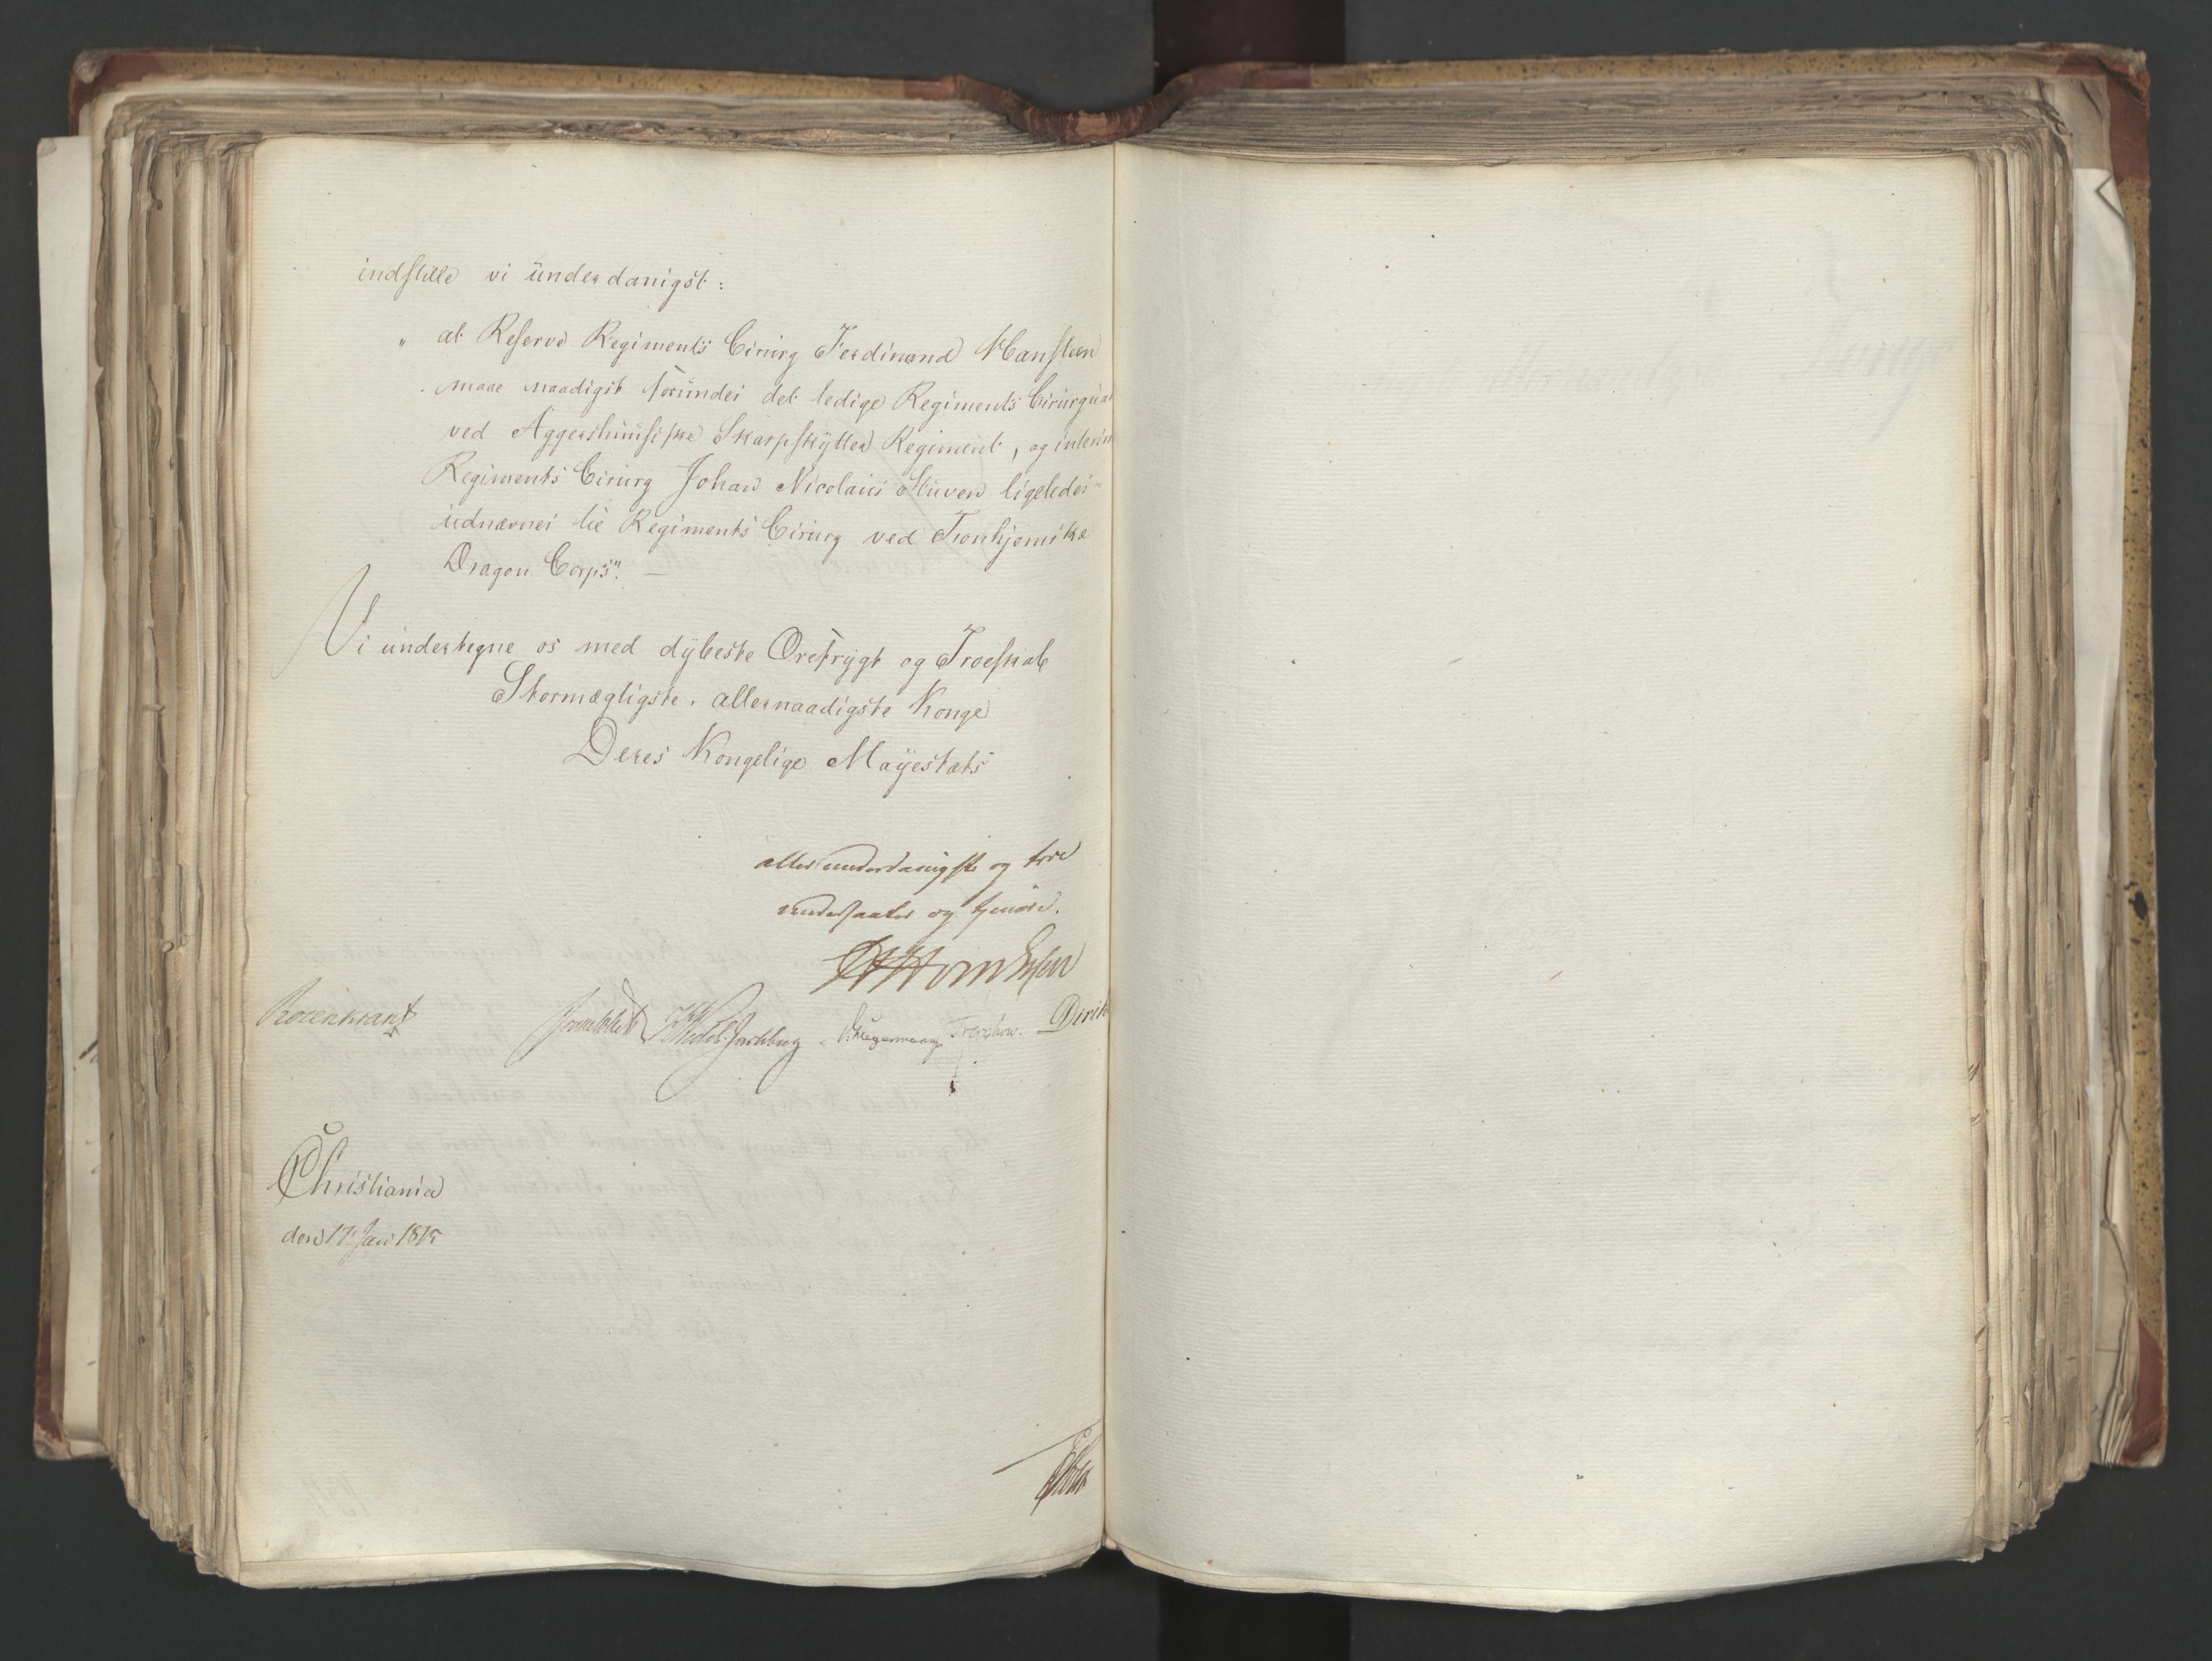 indstille vi ünderdanigst:
„ at Reserve Regiments Cirurg Ferdinand Hansteen
maae naadigst forundes det ledige Regiments Cirurgiat
ved Aggershuusiske Skarpskytter Regiment, og interims
Regiments Cirurg Johan Nicolaus Stüwen ligeledes
udnævnes til Regiments Cirurg ved Tronhjemske
Dragon Corps". —
Vi undertegne os med dÿbeste Ærefrygt og Troeskab
Stormægtigste, allernaadigste Konge
Deres Kongelige Mayestæts
allerunderdanigste og troe
undersaatter og tjenere.
Rosenkrantz Sommerhielm Wedel-Jarlsberg Krieger Treschow. Dirik
Christiania
den 17 Jan 1815